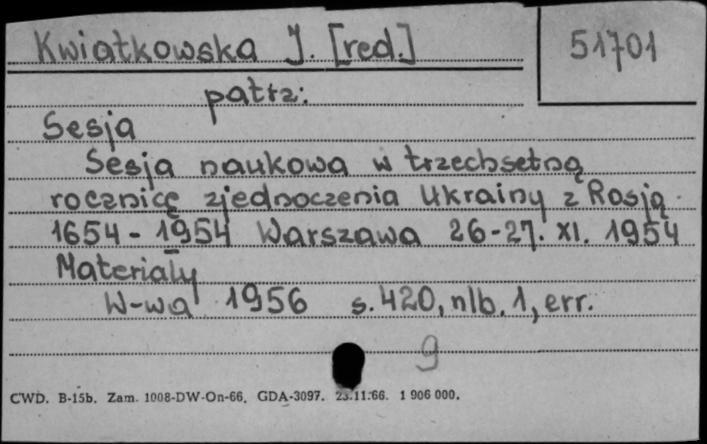 Kwiatkowska J. [red.]
51701
patrz:
Sesja
Sesja naukowa w trzechsetną
rocznicę zjednoczenia Ukrainy z Rosją.
1654 - 1954 Warszawa 26-27. XI. 1954
Materiały
W-wa 1956 s. 420, nlb. 1, err.
9
CWD. B-15b. Zam. 1008-DW-On-66. GDA-3097. 23.11.66. 1 906 000.